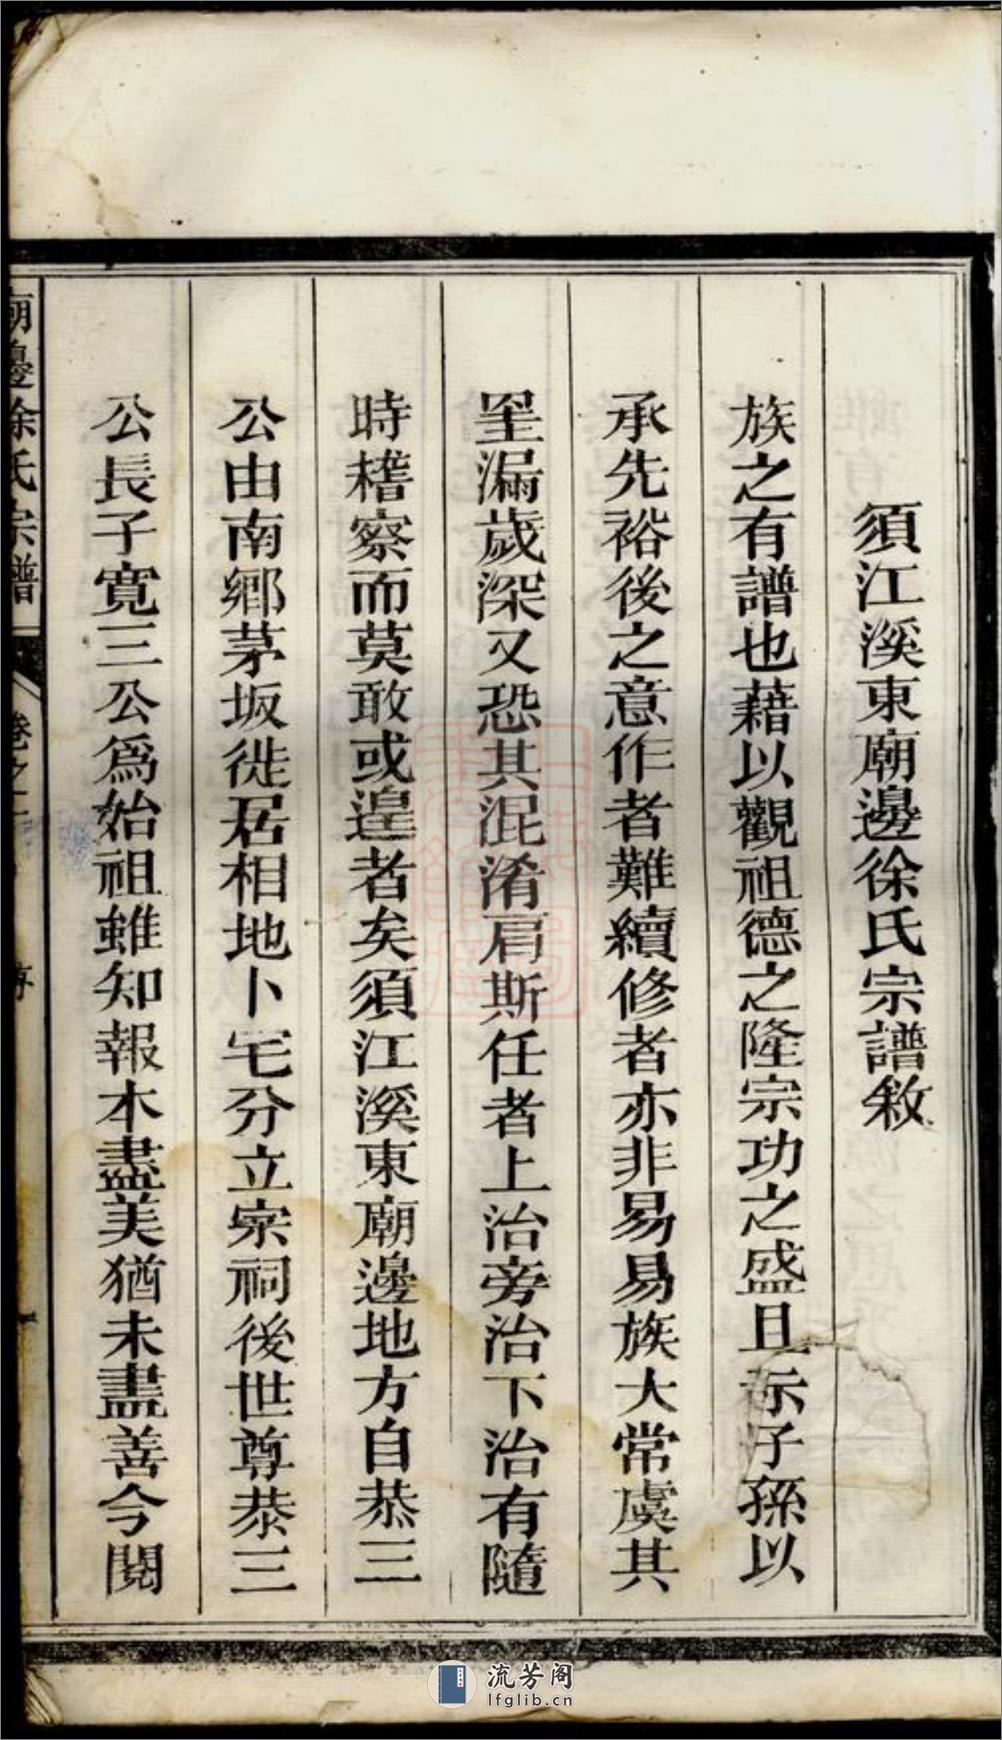 須江溪東廟邊徐氏宗譜敘
族之有譜也藉以觀祖德之隆宗功之盛且示子孫以
承先裕後之意作者難續修者亦非易易族大常虞其
罣漏歲深又恐其混淆肩斯任者上治旁治下治有隨
時稽察而莫敢或遑者矣須江溪東廟邊地方自恭三
公由南鄉茅坂徙居相地卜宅分立宗祠後世尊恭三
公長子寬三公為始祖雖知報本盡美猶未盡善今閱
廟邊徐氏宗譜
卷之一
序
一
流芳阁
lfglib.cn